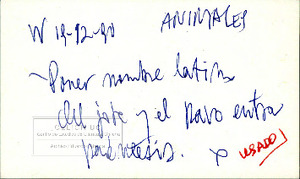 W 19-92-90 ANIMALES
Poner nombre latin
del jote y el pavo entre
paréntesis. x USADO!